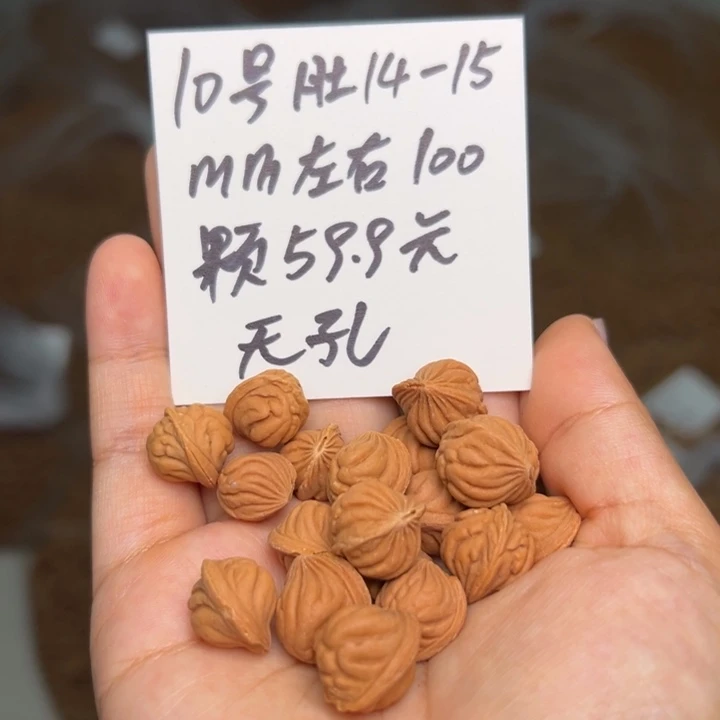 10号肚14-15
mm左右100
颗59.9元
无孔